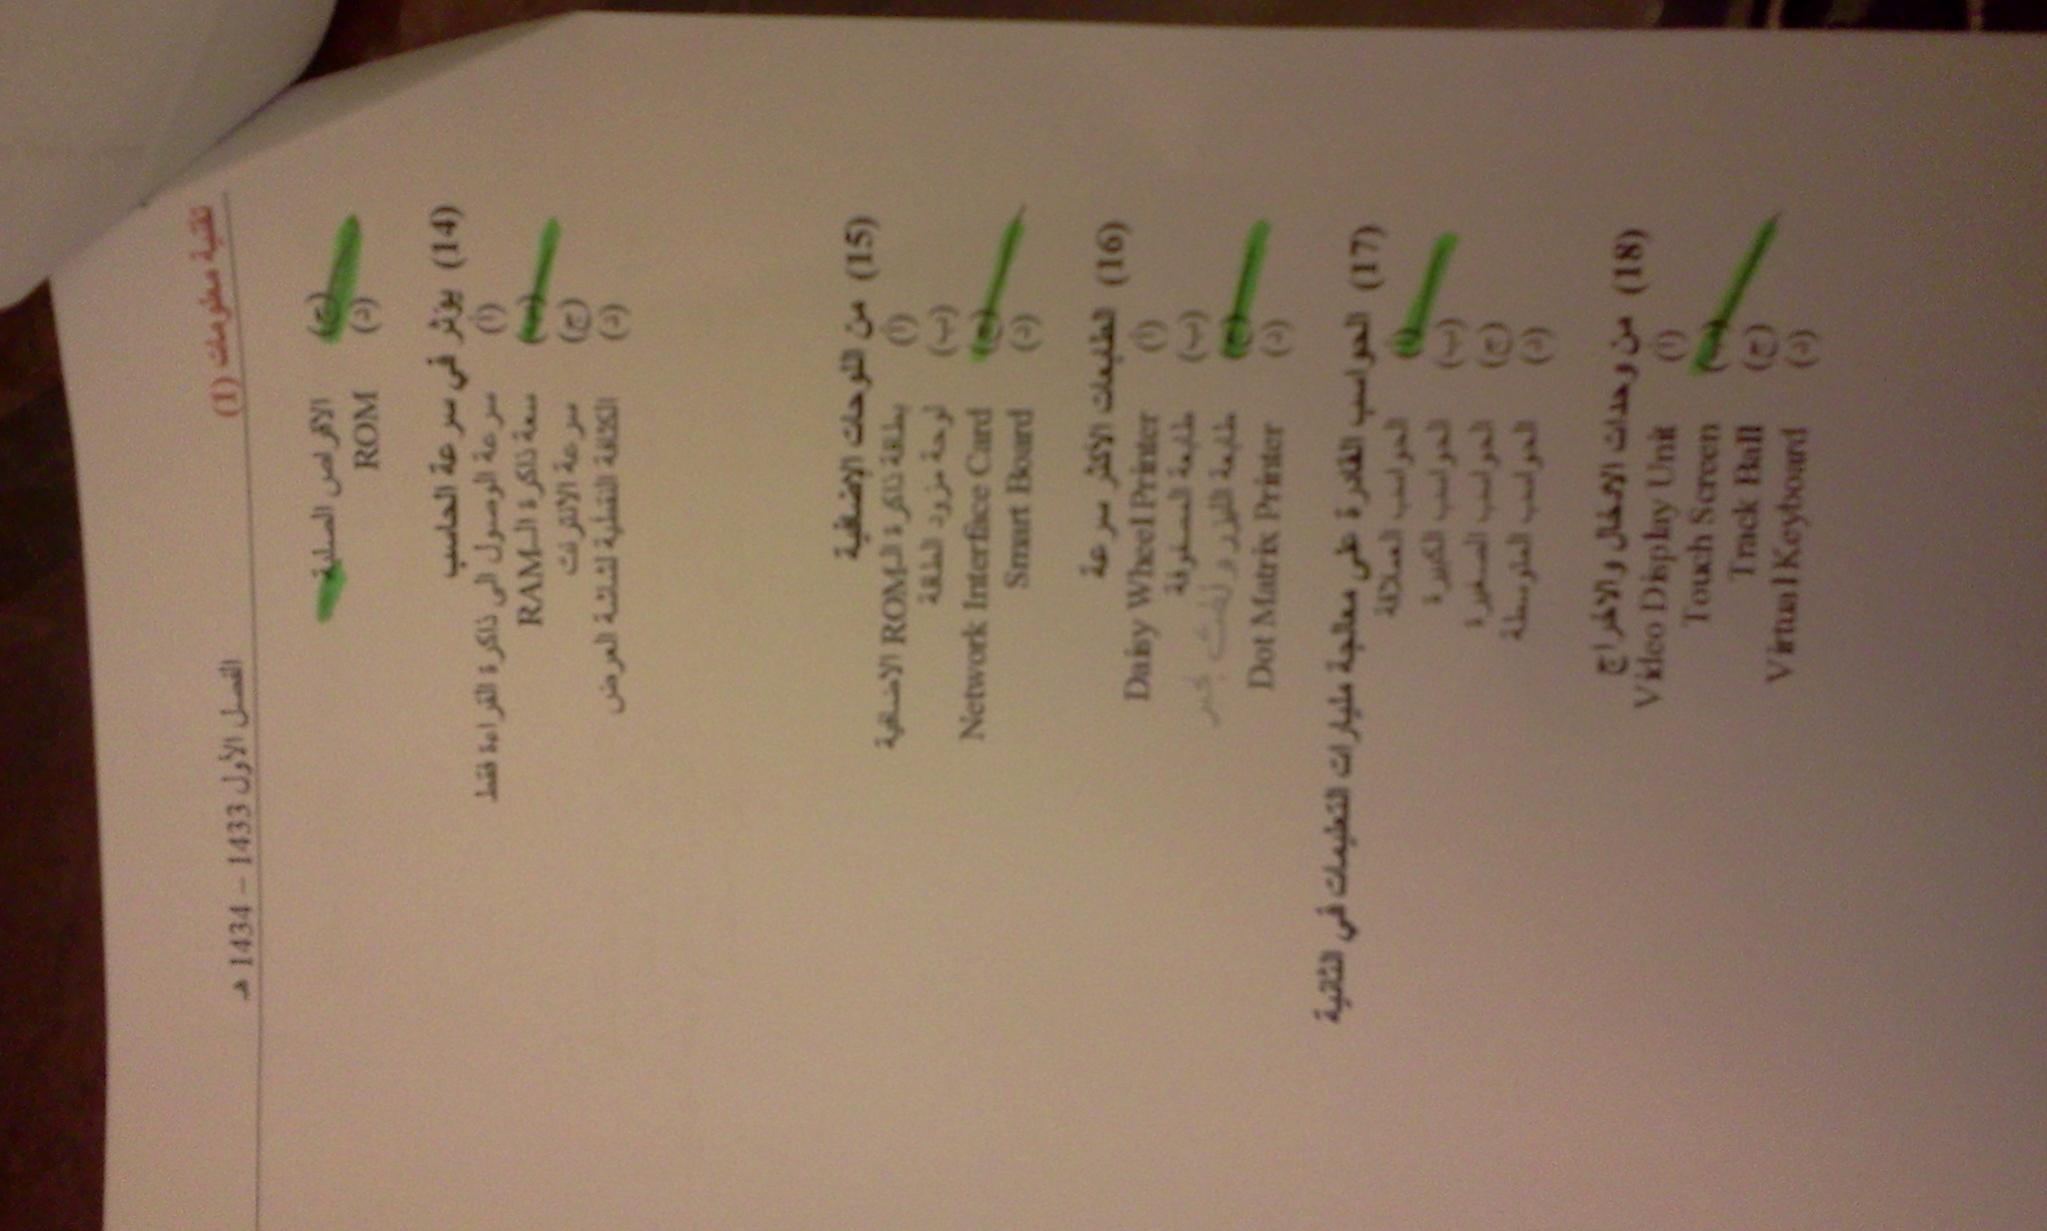 تقنية معلومات (1)
الفصل الأول 1433 – 1434 هـ
(ج) الاقراص الصلبة
(د) ROM
(14) يؤثر في سرعة الحاسب
(أ) سرعة الوصول الى ذاكرة القراءة فقط
(ب) سعة ذاكرة الـRAM
(ج) سرعة الانترنت
(د) الكثافة النقطية لشاشة العرض
(15) من اللوحات الإضافية
(أ) بطاقة ذاكرة الـROM الاضافية
(ب) لوحة مزود الطاقة
(ج) Network Interface Card
(د) Smart Board
(16) الطابعات الاكثر سرعة
(أ) Daisy Wheel Printer
(ب) طابعة المصفوفة
(ج) طابعة الليزر
(د) Dot Matrix Printer
(17) الحواسب القادرة على معالجة مليارات التعليمات في الثانية
(أ) الحواسب العملاقة
(ب) الحواسب الكبيرة
(ج) الحواسب الصغيرة
(د) الحواسب المتوسطة
(18) من وحدات الادخال والاخراج
(أ) Video Display Unit
(ب) Touch Screen
(ج) Track Ball
(د) Virtual Keyboard